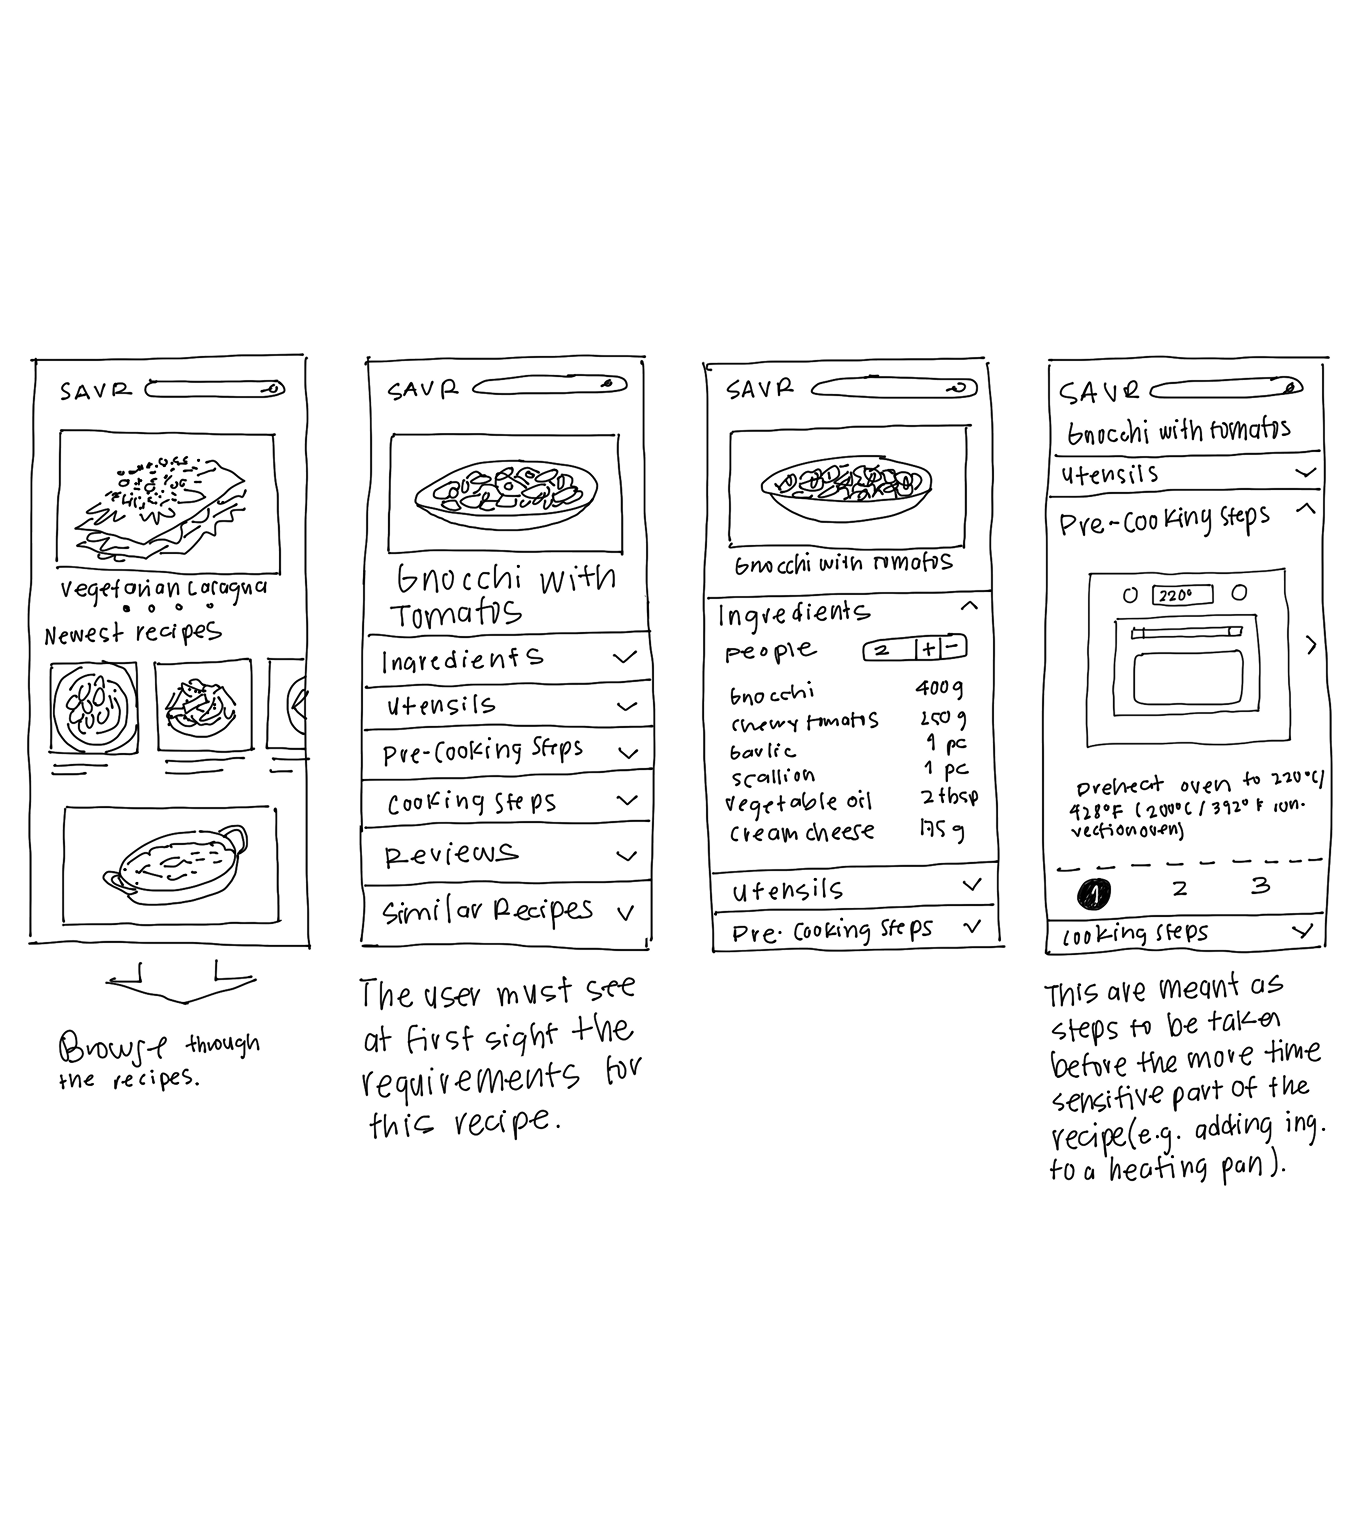 SAVR
Vegetarian Lasagna
Newest recipes
Browse through
the recipes.
SAVR
Gnocchi with
Tomatos
Ingredients
Utensils
Pre-Cooking Steps
Cooking Steps
Reviews
Similar Recipes
The user must see
at first sight the
requirements for
this recipe.
SAVR
Gnocchi with Tomatos
Ingredients
People 2 + -
Gnocchi 400g
Cherry tomatos 250g
Garlic 1 pc
Scallion 1 pc
Vegetable oil 2 tbsp
Cream cheese 175g
Utensils
Pre-Cooking Steps
SAVR
Gnocchi with tomatos
Utensils
Pre-Cooking Steps
220°
Preheat oven to 220°C/
428°F (200°C/392°F con-
vection oven)
1 2 3
Cooking Steps
This are meant as
steps to be taken
before the more time
sensitive part of the
recipe(e.g. adding ing.
to a heating pan).